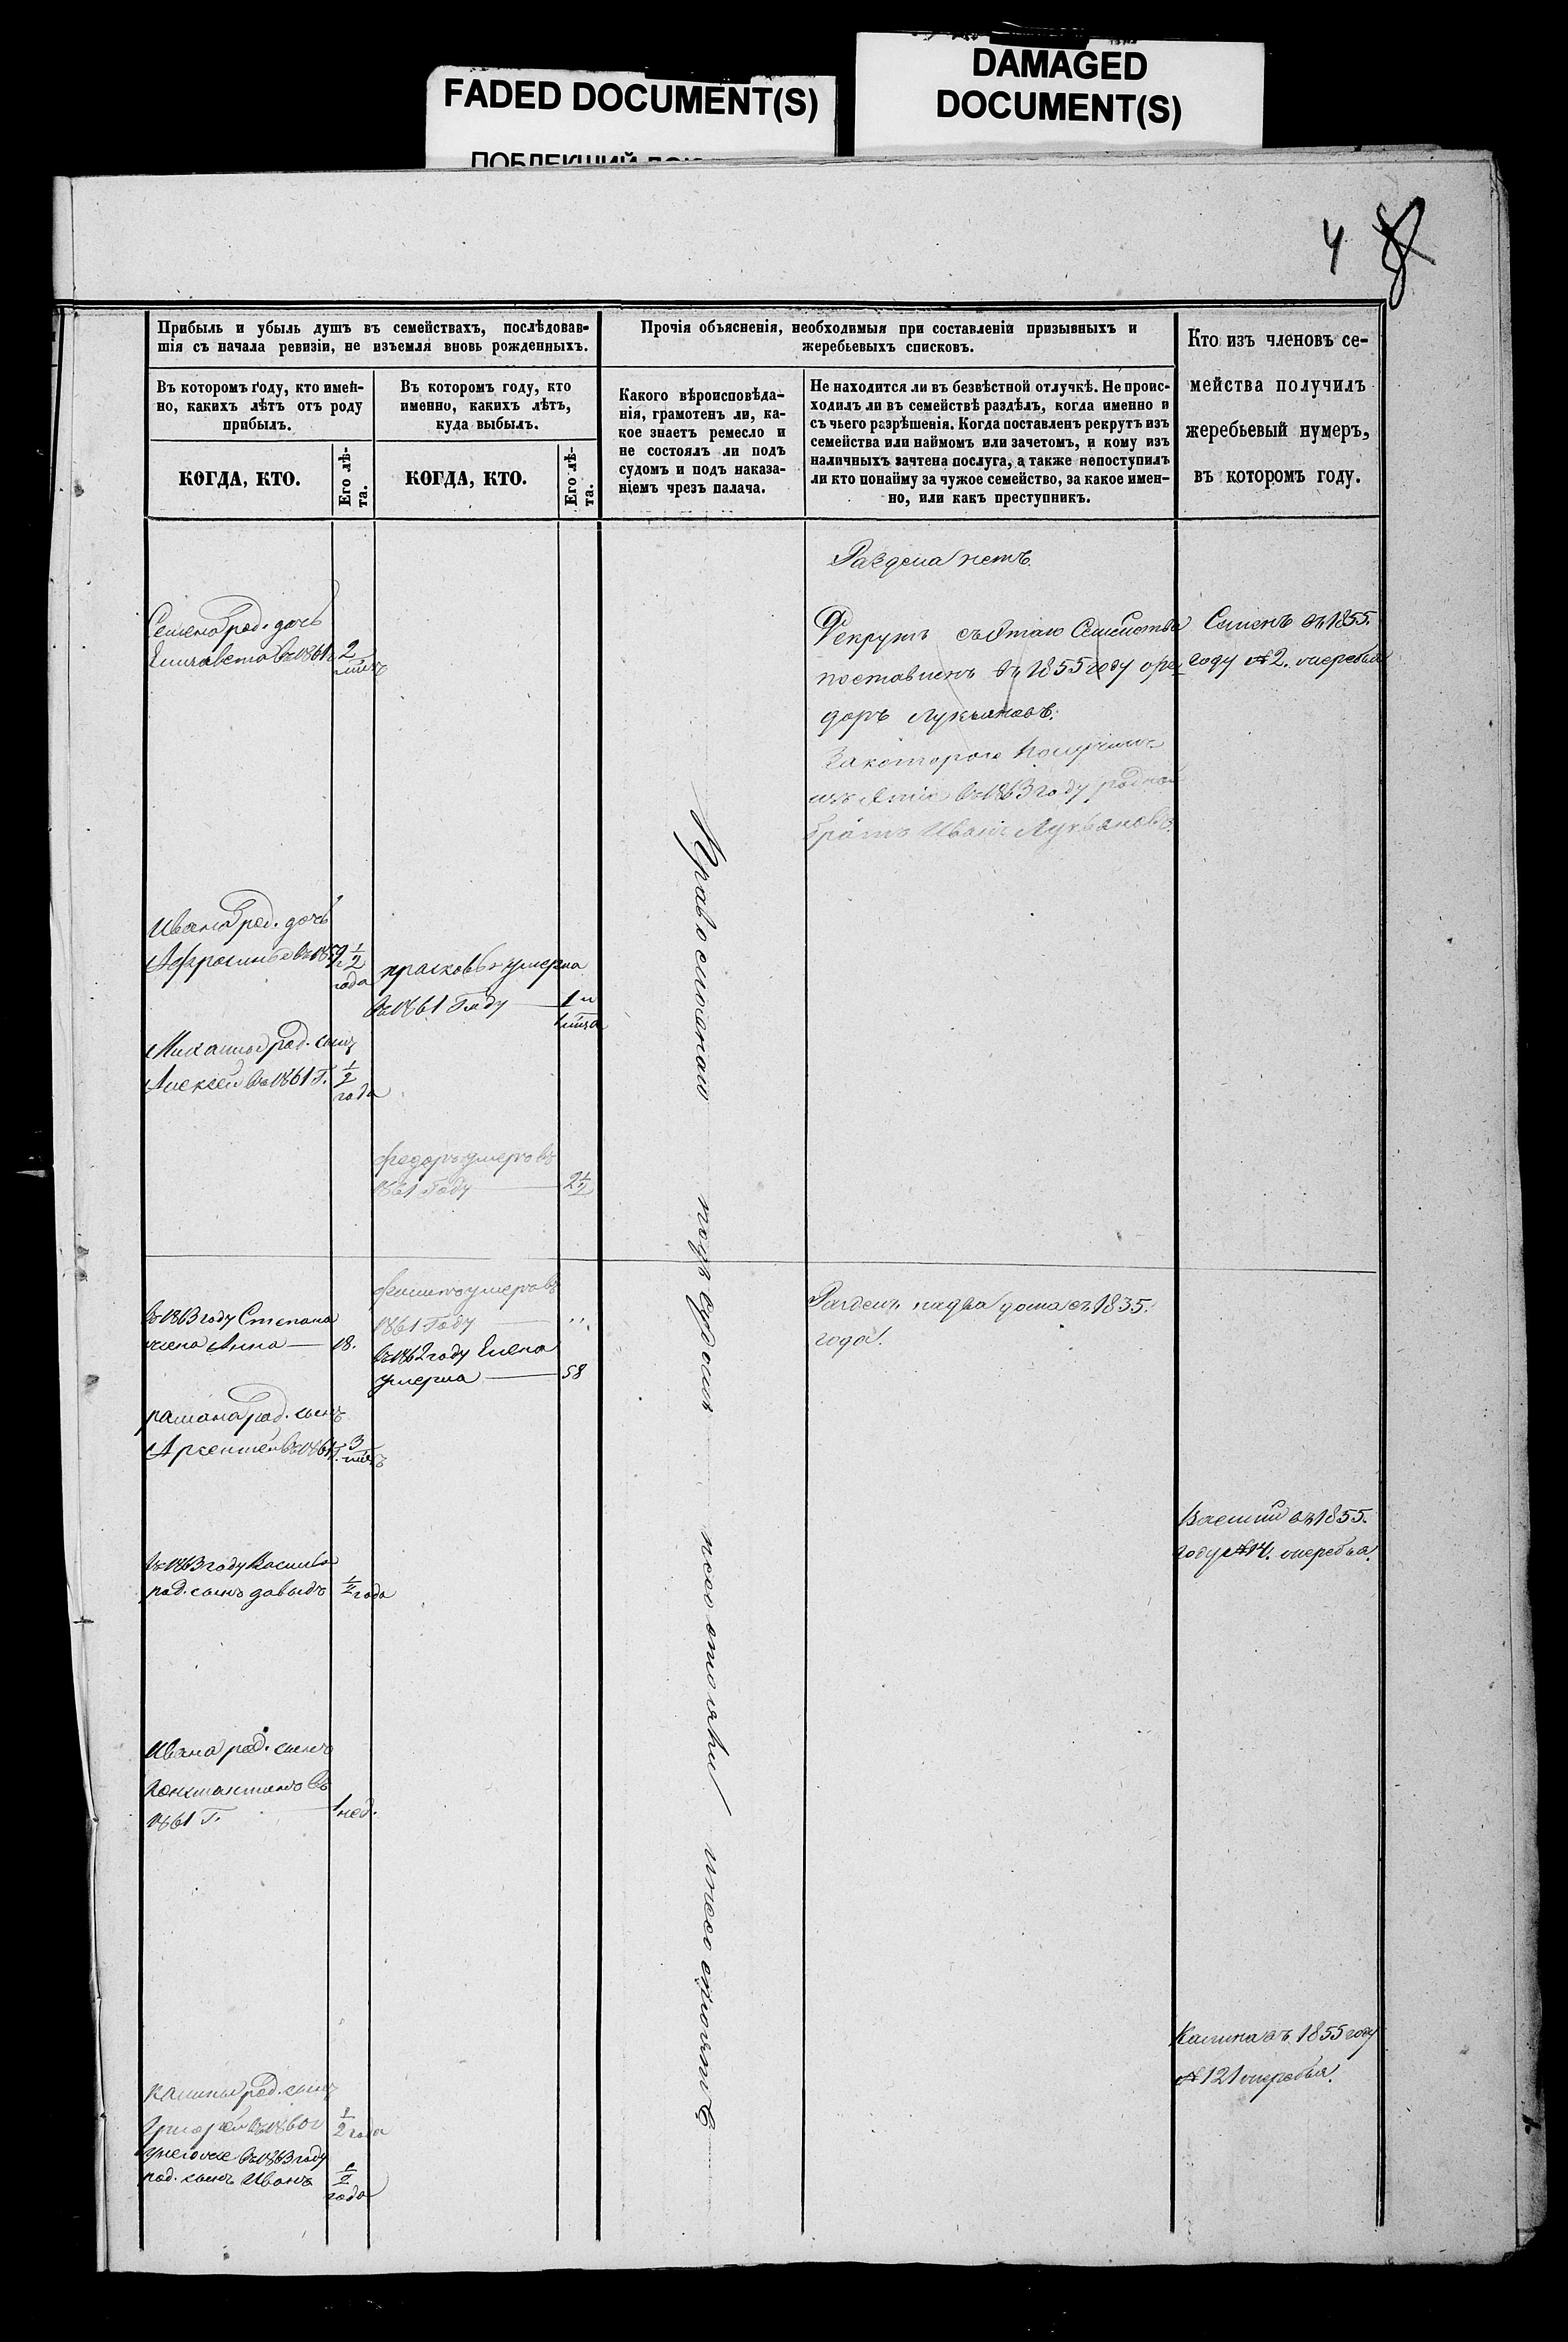 FADED DOCUMENT(S)
DAMAGED
DOCUMENT(S)
4 8
Прибыль и убыль душъ въ семействахъ, послѣдовав-
шія съ начала ревизіи, не изъемля вновь рожденныхъ.
Въ которомъ году, кто имен-
но, какихъ лѣтъ отъ роду
прибылъ.
КОГДА, КТО.
Его лѣ-
та.
Въ которомъ году, кто
именно, какихъ лѣтъ,
куда выбылъ.
КОГДА, КТО.
Его лѣ-
та.
Прочія объясненія, необходимыя при составленіи призывныхъ и
жеребьевыхъ списковъ.
Какого вѣроисповѣда-
нія, грамотенъ ли, ка-
кое знаетъ ремесло и
не состоялъ ли подъ
судомъ и подъ наказа-
ніемъ чрезъ палача.
Не находится ли въ безвѣстной отлучкѣ. Не проис-
ходилъ ли въ семействѣ раздѣлъ, когда именно и
съ чьего разрѣшенія. Когда поставленъ рекрутъ изъ
семейства или наймомъ или зачетомъ, и кому изъ
наличныхъ зачтена послуга, а также непоступилъ
ли кто понайму за чужое семейство, за какое имен-
но, или какъ преступникъ.
Кто изъ членовъ се-
мейства получилъ
жеребьевый нумеръ,
въ которомъ году.
Семена род. дочь
Елизавета въ 1861 2
лѣтъ
Ивана род. дочь
Афросинья
1/2
года
Михаилы род. сынъ
Алексей въ 1861 г. 1/2
года
въ 1863 году Степана
жена Анна — 18.
рамана род. сынъ
Арсентей въ 1861 г. 3
лѣтъ
въ 1863 году Василья
род. сынъ давыдъ 1/2 года
Ивана род. сынъ
Константинъ въ
1861 г. — 1 нед.
Калины род. сынъ
Григорей въ 1860 1/2 года
унегоже въ 1863 году
род. сынъ Иванъ 1/2
года
прасковья умерла
въ 1861 Году — 1 и
федоръ умеръ въ
1861 Году — 2 1/2
филипъ умеръ въ
1861 Году — "
въ 1862 году Елена
умерла — 58
Православнаго подъ судомъ несостояли
Раздела нетъ.
Рекрутъ съ Етаго Семейства
поставленъ въ 1855 году фе-
доръ Лукьяновъ.
Закотораго получилъ
въ 1863 году родной
братъ Иванъ Лукьяновъ.
Разделъ надва дома съ 1835.
года.
Семенъ въ 1855.
году № 2. жеребья
Василий въ 1855.
году № 14. жеребья.
Калина въ 1855 году
№ 121 жеребья.